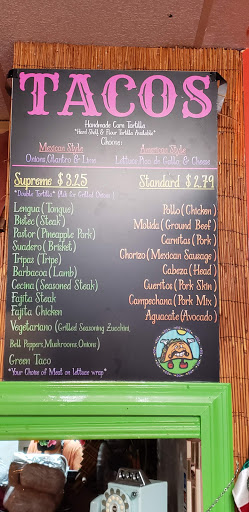 TACOS
Handmade Corn Tortilla
*Hard Shell & Flour Tortilla Available*
Choose:
Mexican Style
Onions Cilantro & Lime
American Style
Lettuce Pico de Gallo & Cheese
Supreme $3.25
Standard $2.79
*Double Tortilla*
Lengua (Tongue)
Bistec (Steak)
Pastor (Pineapple Pork)
Suadero (Brisket)
Tripas (Tripe)
Barbacoa (Lamb)
Cecina (Seasoned Steak)
Fajita Steak
Fajita Chicken
Vegetariano (Grilled Seasoning Zucchini,
Bell Peppers, Mushrooms, Onions)
Green Taco
*Your Choice of Meat on Lettuce wrap*
Pollo (Chicken)
Molida (Ground Beef)
Carnitas (Pork)
Chorizo (Mexican Sausage)
Cabeza (Head)
Cueritos (Pork Skin)
Campechana (Pork Mix)
Aguacate (Avocado)